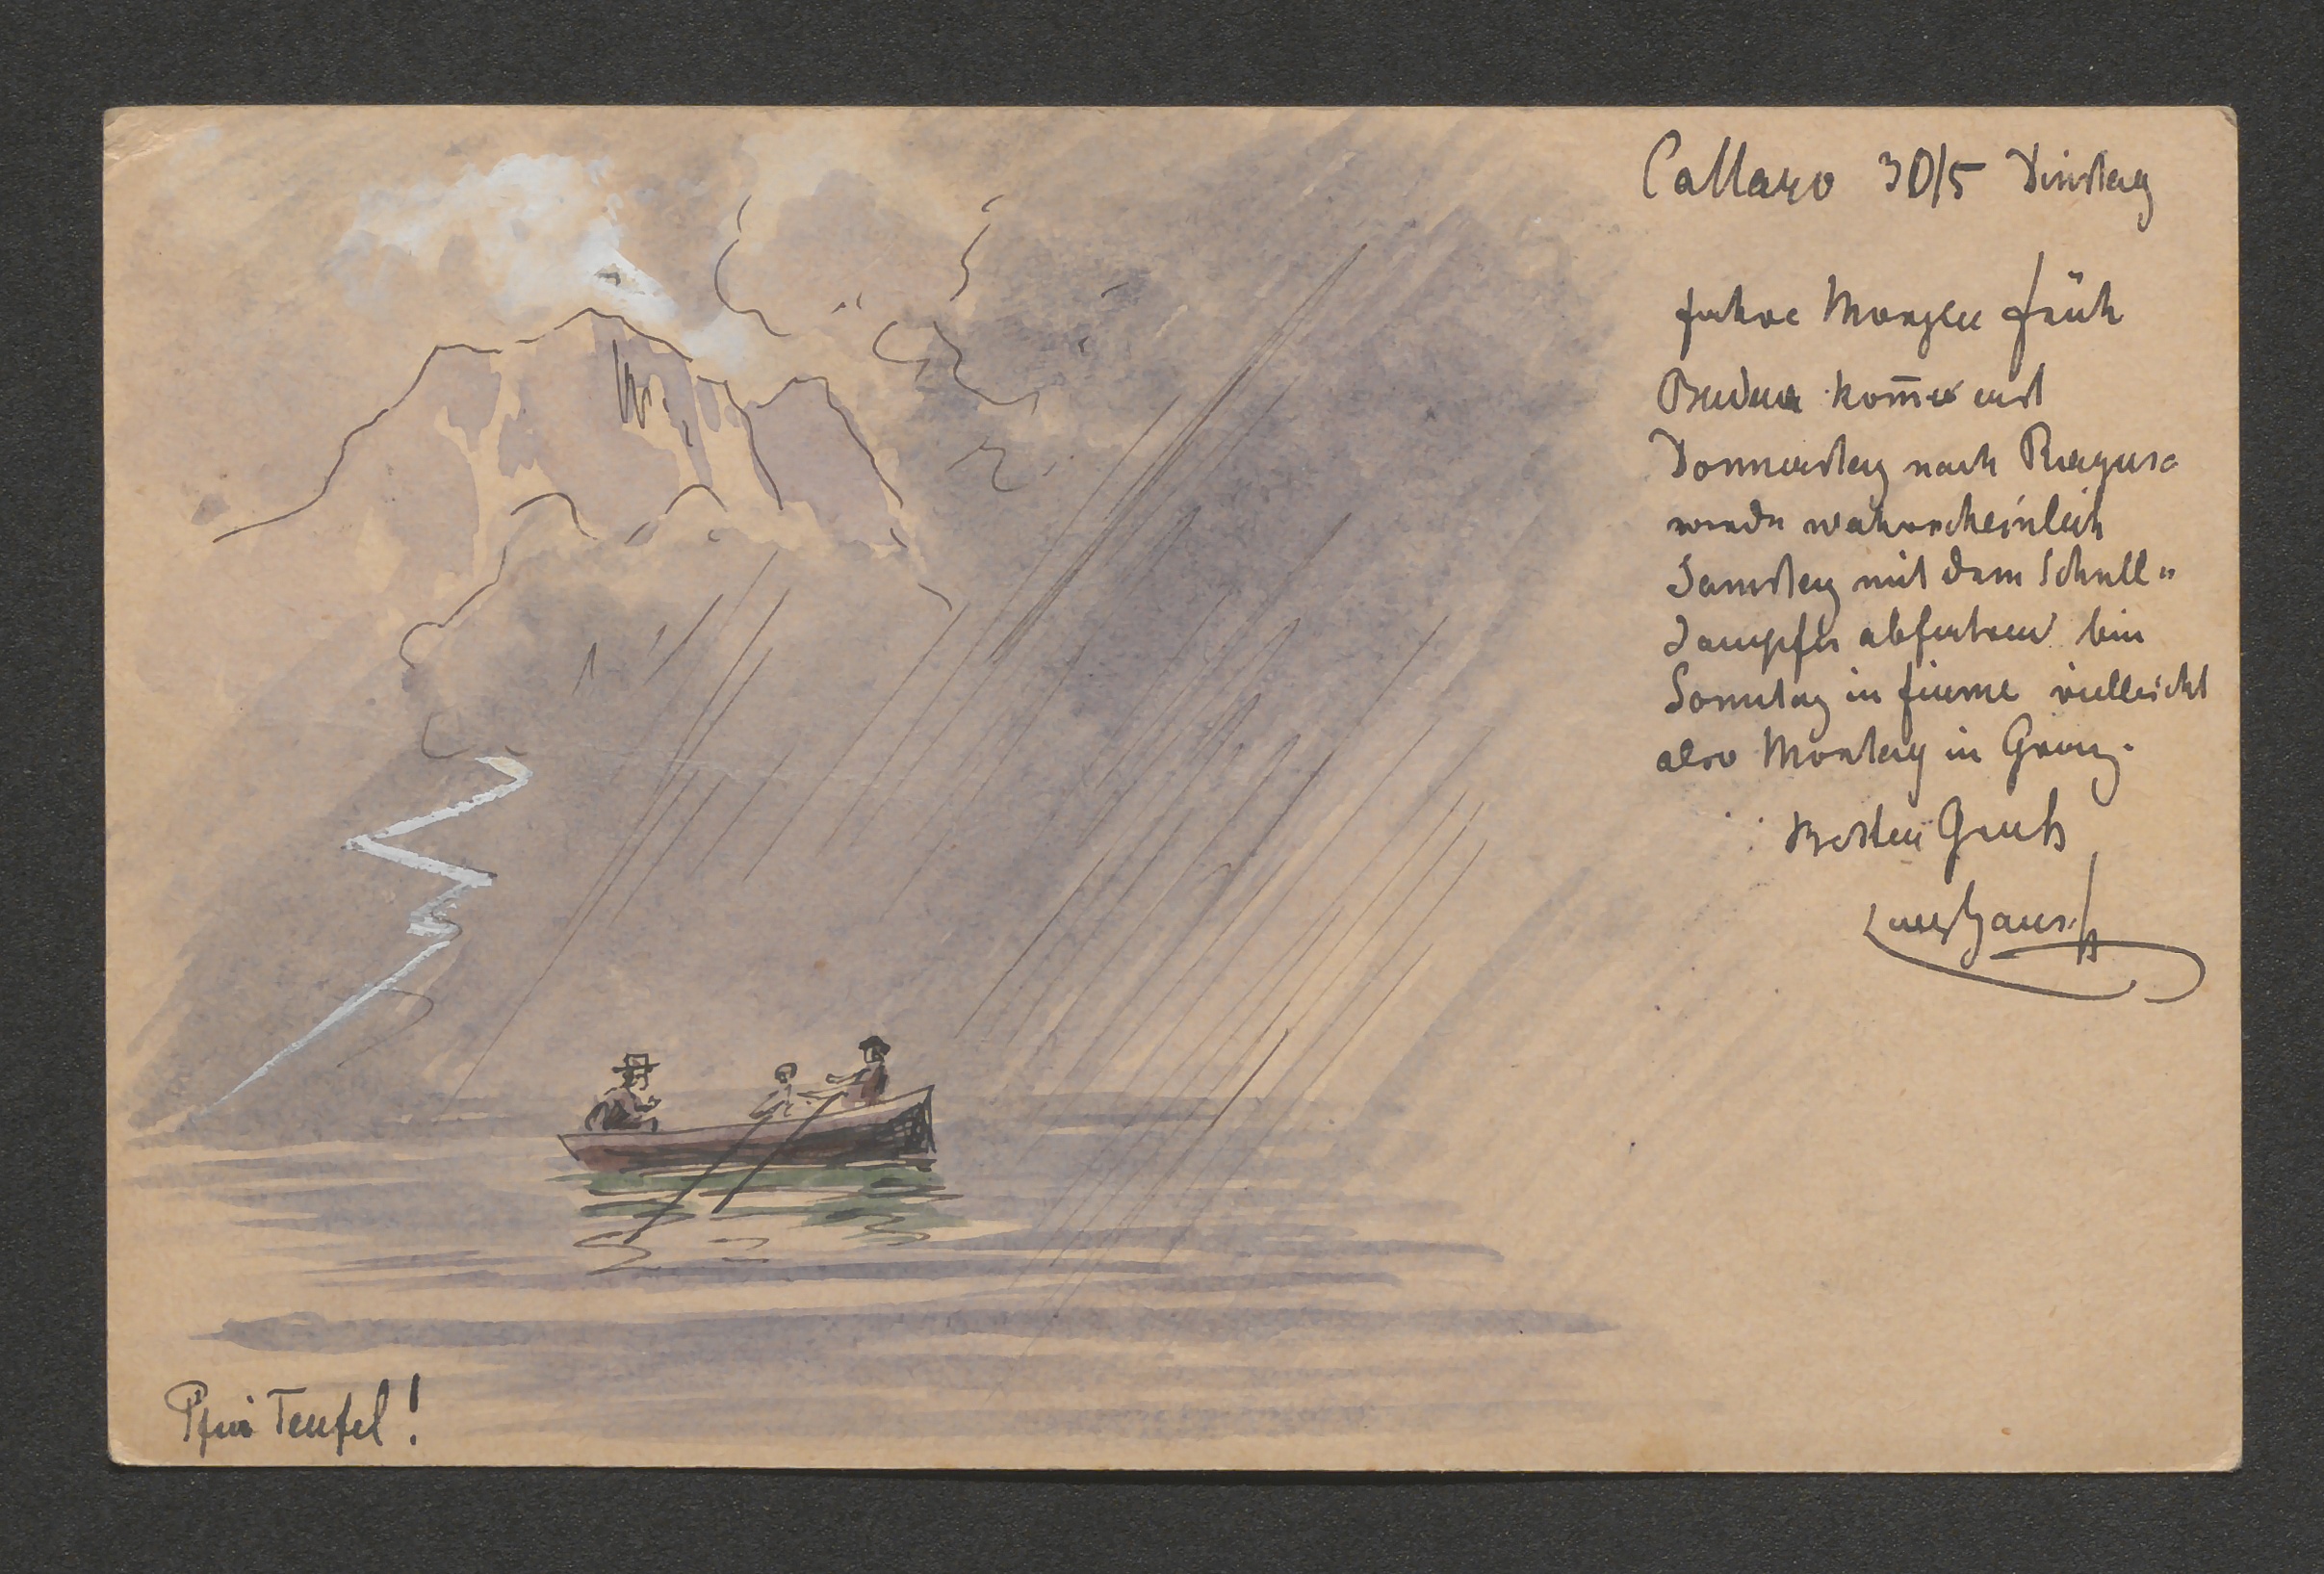 Cattaro 30/5 Dinstag
fahre Morgen früh
Budua kom̄e erst
Donnerstag nach Ragusa
werde wahrscheinlich
Samstag mit dem Schnell-
dampfer abfahren bin
Sonntag in Fiume vielleicht
also Montag in Graz.
Besten Gruß
Pfui Teufel!